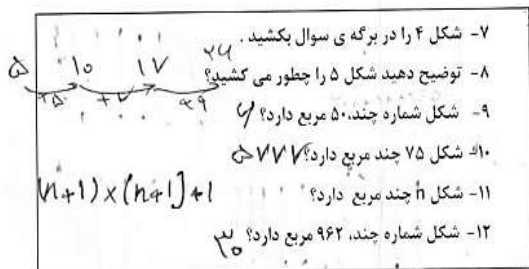 ۷- شکل ۴ را در برگه ی سوال بکشید .
۸- توضیح دهید شکل ۵ را چطور می کشید؟
۵ ۱۰ ۱۷ ۲۶
+۵ +۷ +۹
۹- شکل شماره چند، ۵۰ مربع دارد؟ ۶
۱۰- شکل ۷۵ چند مربع دارد؟ ۵۷۷۷
۱۱- شکل n چند مربع دارد؟ (n+1)×(n+1]+1
۱۲- شکل شماره چند، ۹۶۲ مربع دارد؟ ۳۰